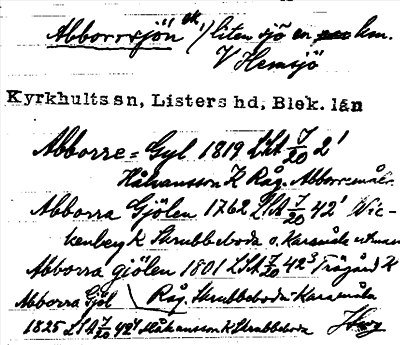 Abborrsjön ek, liten sjö en km.
V Hemsjö
Kyrkhults sn, Listers hd, Blek. län
Abborre=Gyl 1819 LSA 7/20 2¹
Håkansson K Råg. Abboremåla.
Abborra Gjölen 1762 LSA 7/20 42¹ Wic-
kenberg K Skrubbeboda o. Karsmåla
Abborra gjölen 1801 LSA 7/20 42³ Trägård K
Abborra Gjöl Råg. Skrubbeboda-Karamåla
1825 LSA 7/20 42⁴ Håkansson K Skrubbeboda